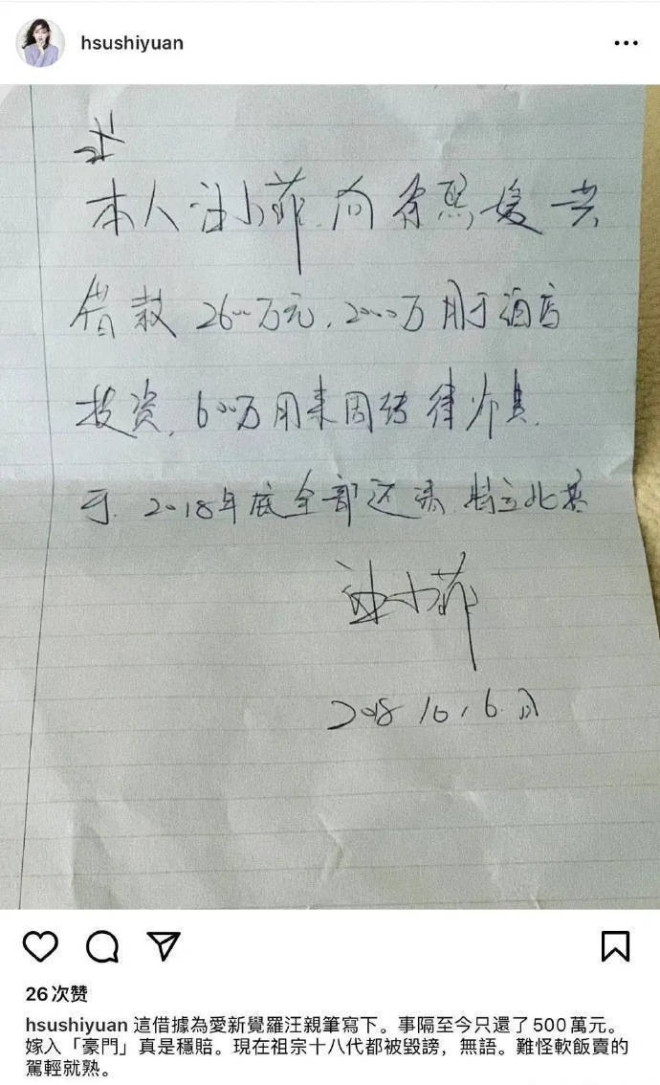 hsushiyuan
本人汪小菲.向徐熙媛共
借款2600万元,2000万用于酒店
投资,600万用来周转律师费.
于.2018年底全部还清.特立此
汪小菲
2018 10,6.日
26次赞
hsushiyuan 這借據為愛新覺羅汪親筆寫下。事隔至今只還了500萬元。
嫁入「豪門」真是穩賠。現在祖宗十八代都被毀謗，無語。難怪軟飯賣的
駕輕就熟。